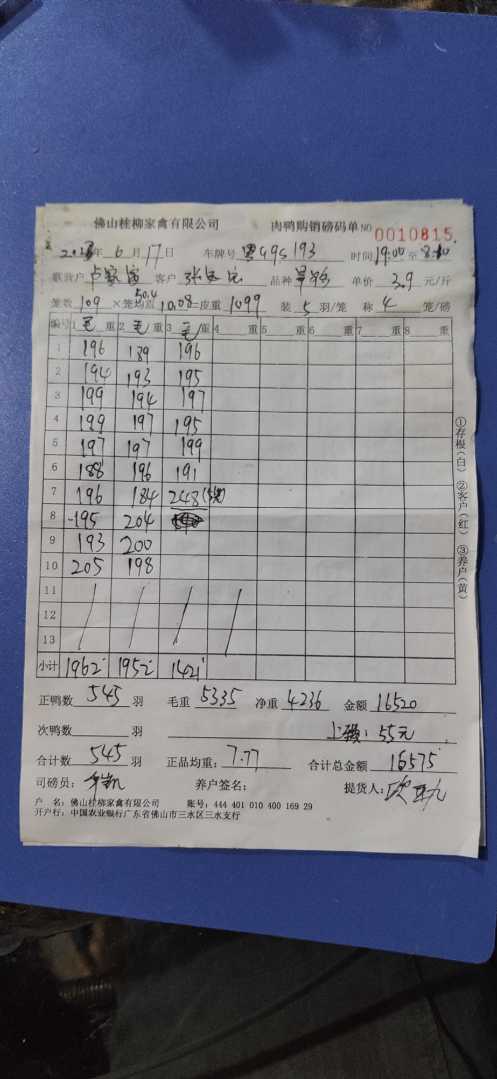 佛山桂柳家禽有限公司 肉鸭购销磅码单 NO 0010815
年 6 月 17 日 车牌号 粤 193 时间 19:00 至
客户 张 品种 单价 3.9 元/斤
笼数 109 × 笼均重 10.08 皮重 1099 装 5 羽/笼 称 4 笼/磅
50.4
编号 1 毛 重 2 毛 重 3 毛 重 4 重 5 重 6 重 7 重 8 重
1 196 189 196
2 194 193 195
3 199 194 197
4 199 197 195
5 197 197 199
6 188 196 191
7 196 184 248
8 195 204
9 193 200
10 205 198
11
12
13
小计 1962 1952 1421
正鸭数 545 羽 毛重 5335 净重 4236 金额 16520
次鸭数 羽 55元
合计数 545 羽 正品均重: 7.77 合计总金额 16575
司磅员: 养户签名: 提货人:
户 名: 佛山桂柳家禽有限公司 账号: 444 401 010 400 169 29
开户行: 中国农业银行广东省佛山市三水区三水支行
①存根(白) ②客户(红) ③养户(黄)